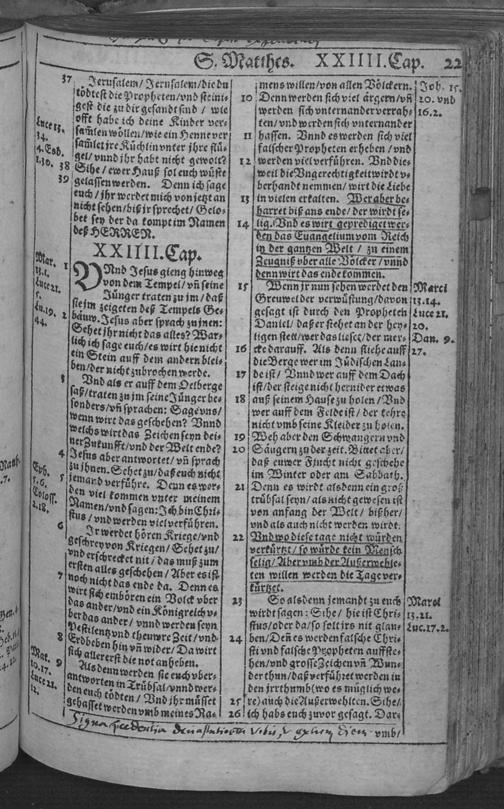 S. Matthes. XXIIII. Cap. 22
37 Jerusalem/ Jerusalem/die du
tödtest die Propheten/vnd steini-
gest die zu dir gesandt sind / wie
offt habe ich deine Kinder ver-
samlen wöllen/wie ein Henne ver
samlet jre Küchlin vnter jhre flü-
gel/ vnnd jhr habt nicht gewolt?
38 Sihe / ewer Hauß sol euch wüste
39 gelassen werden. Denn ich sage
euch / jhr werdet mich von jetzt an
nicht sehen/biß jr sprechet/ Gelo-
bet sey der da kompt im Namen
deß HERREN.
Luce 13.
34.
4. Esd.
1.30.
XXIIII. Cap.
1 VNnd Jesus gieng hinweg
von dem Tempel/ vñ seine
Jünger traten zu jm / daß
sie jm zeigeten deß Tempels Ge-
2 bäuw. Jesus aber sprach zu jnen:
Sehet jhr nicht das alles? War-
lich ich sage euch/es wirt hie nicht
ein Stein auff dem andern blei-
ben/der nicht zubrochen werde.
Mar.
13.1.
Luce 21.
5.
Lu. 19.
44.
3 Vnd als er auff dem Oelberge
saß/traten zu jm seine Jünger be-
sonders/vñ sprachen: Sage vns/
wenn wirt das geschehen? Vnnd
welchs wirt das Zeichen seyn dei-
ner Zukunfft/vnd der Welt ende?
4 Jesus aber antwortet/ vñ sprach
zu jhnen. Sehet zu/daß euch nicht
5 jemand verführe. Denn es wer-
den viel kommen vnter meinem
Namen/vnd sagen: Ich bin Chri-
stus / vnd werden viel verführen.
Eph.
5.6.
Coloss.
2.18.
6 Jr werdet hören Kriege/vnd
geschrey von Kriegen/ Sehet zu/
vnd erschreckt nit / das muß zum
ersten alles geschehen / Aber es ist
7 noch nicht das ende da. Denn es
wirt sich embören ein Volck vber
das ander/vnd ein Königreich v-
ber das ander / vnnd werden seyn
Pestilentz vnd theuwre Zeit /vnd
8 Erdbeben hin vñ wider/ Da wirt
sich allererst die not anheben.
9 Als denn werden sie euch vber-
antworten in Trübsal/vnnd wer-
den euch tödten / Vnd jhr müsset
gehasset werden vmb meines Na-
Mat.
10.17.
Luce 21.
12.
mens willen/von allen Völckern.
10 Denn werden sich viel ärgern/vñ
werden sich vnternander verrah-
ten/vnd werden sich vnternander
11 hassen. Vnnd es werden sich viel
falscher Propheten erheben / vnd
12 werden viel verführen. Vnd die-
weil die Vngerechtigkeit wirdt v-
berhandt nemmen/ wirt die Liebe
13 in vielen erkalten. Wer aber be-
harret biß ans ende/ der wirdt se-
14 lig. Vnd es wirt geprediget wer-
den das Euangelium vom Reich
in der gantzen Welt / zu einem
Zeugniß vber alle Völcker/ vnnd
denn wirt das ende kommen.
Joh. 15.
20. vnd
16.2.
15 Wenn jr nun sehen werdet den
Greuwel der verwüstung/ davon
gesagt ist durch den Propheten
Daniel/ daß er stehet an der hey-
tigen stett/wer das lieset/der mer-
16 cke darauff. Als denn fliehe auff
die Berge wer im Jüdischen Lan-
17 de ist/ Vnnd wer auff dem Dach
ist/der steige nicht hernider etwas
18 auß seinem Hause zu holen/ Vnd
wer auff dem Felde ist / der kehre
nicht vmb seine Kleider zu holen.
19 Weh aber den Schwangern vnd
20 Säugern zu der zeit. Bittet aber/
daß euwer Flucht nicht geschehe
im Winter oder am Sabbath.
21 Denn es wirdt als denn ein groß
trübsal seyn / als nicht gewesen ist
von anfang der Welt / bißher/
vnd als auch nicht werden wirdt.
22 Vnd wo diese tage nicht würden
verkürtzt / so würde kein Mensch
selig/ Aber vmb der Außerwehle-
ten willen werden die Tage ver-
kürtzet.
Marci
13.14.
Luce 21.
20.
Dan. 9.
27.
23 So als denn jemandt zu euch
wirdt sagen: Sihe / hie ist Chri-
stus/oder da / so solt jrs nit glau-
24 ben/ Deñ es werden falsche Chri-
sti vnd falsche Propheten auffste-
hen/vnd grosse Zeichen vñ Wun-
der thun/daß verführet werden in
den jrrthumb( wo es müglich we-
25 re) auch die Außerwehlten. Sihe/
26 ich habs euch zuvor gesagt. Dar-
vmb/
Marci
13.21.
Luc. 17.2.